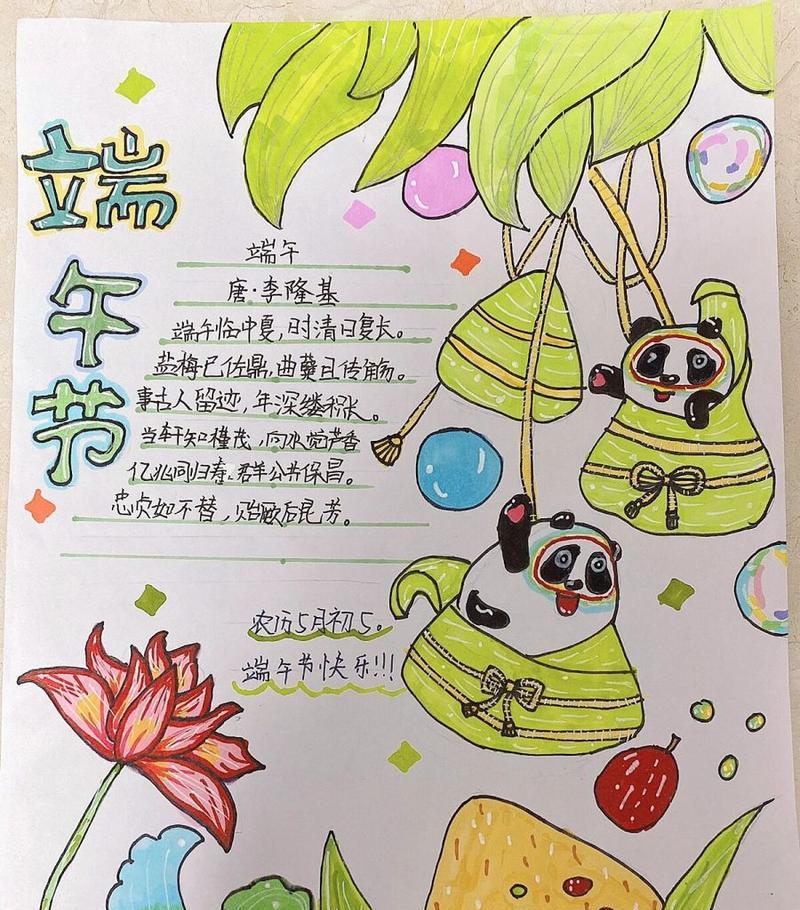 端午节
端午
唐·李隆基
端午临中夏,时清日复长。
盐梅已佐鼎,曲蘖且传觞。
事古人留迹,年深缕积长。
当轩知槿茂,向水觉芦香
亿兆同归寿,群公共保昌。
忠贞如不替,贻厥后昆芳。
农历5月初5。
端午节快乐!!!